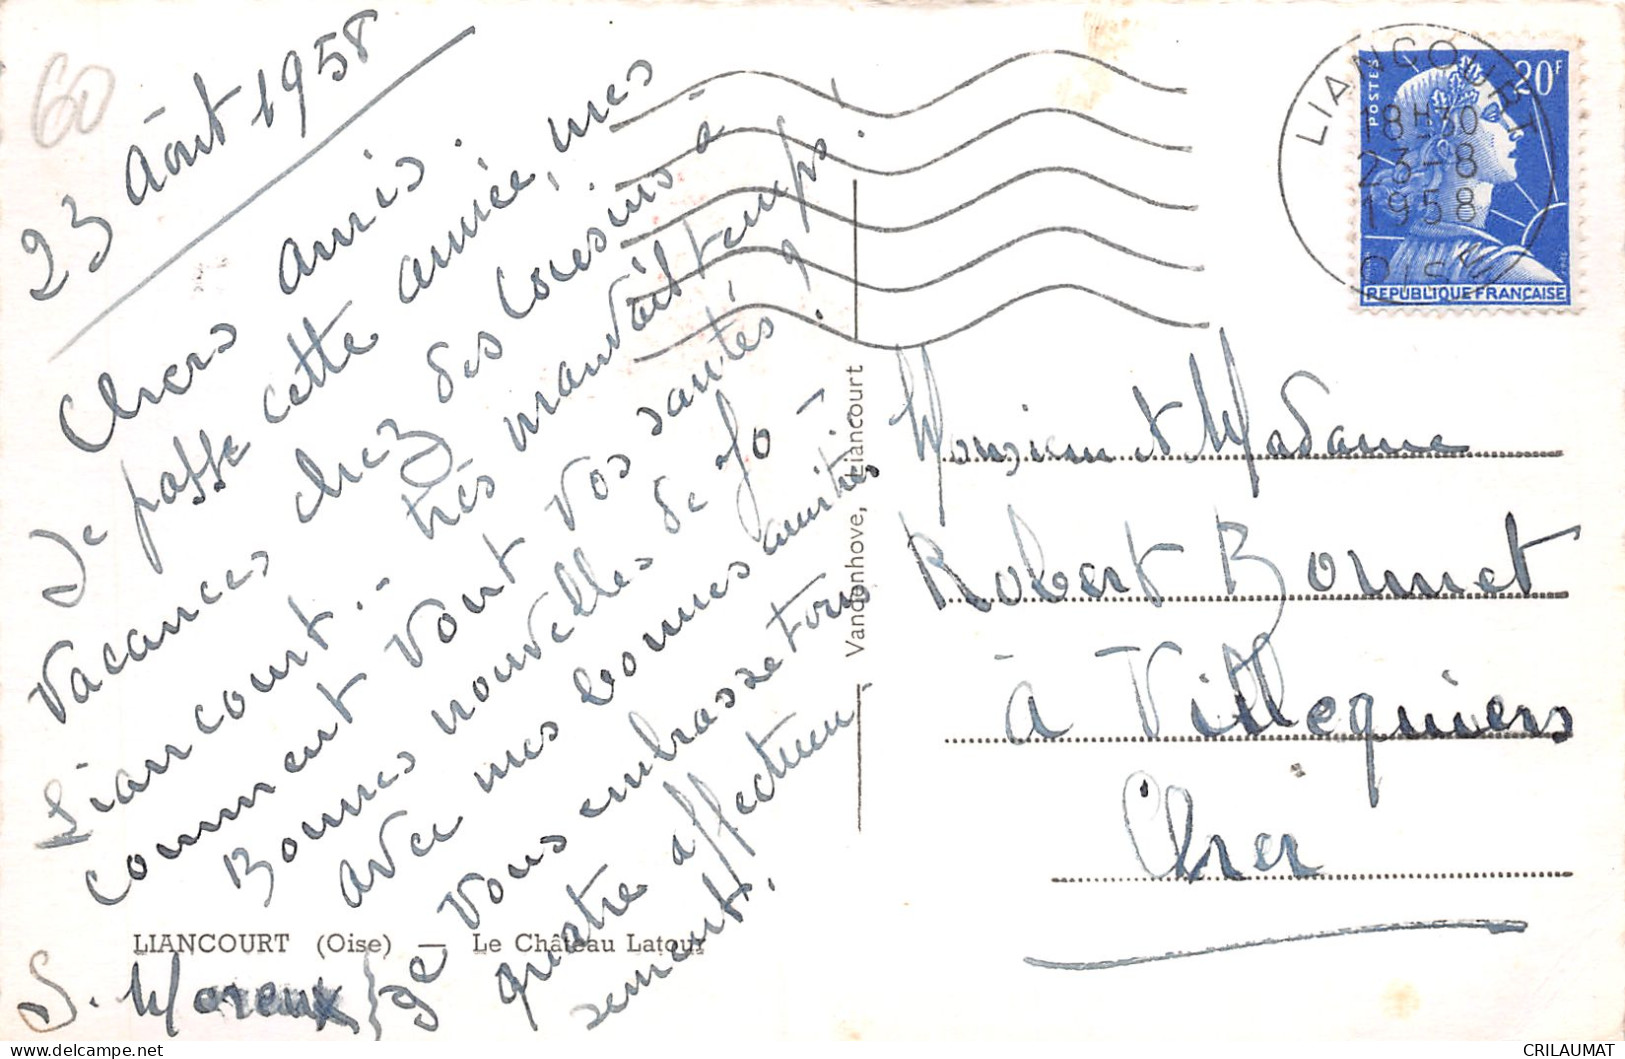 60
23 Août 1958
Chers amis.
Je passe cette année, mes
vacances chez des cousins à
Liancourt.- très mauvais temps!
comment vont vos santés?
Bonnes nouvelles de Jo -
avec mes bonnes amitiés
Je vous embrasse tous
quatre affectueu
sement.
S. Moreux
LIANCOURT (Oise) — Le Château Latour
Vandenhove, Liancourt
LIANCOURT
18H30
23-8
1958
OISE
POSTES
20F
REPUBLIQUE FRANÇAISE
Monsieur et Madame
Robert Bonnet
à Villequiers
Cher
CRILAUMAT